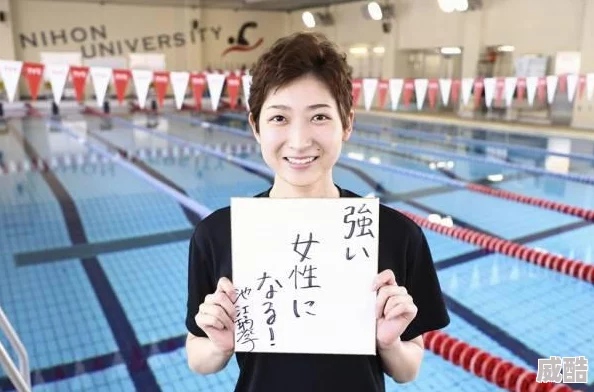 NIHON UNIVERSITY
強い
女性に
なる!
池江璃花子
威酷